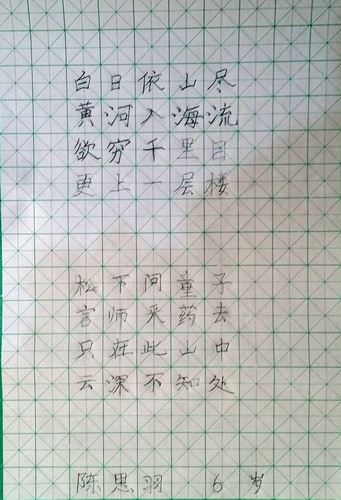 白日依山尽
黄河入海流
欲穷千里目
更上一层楼
松下问童子
言师采药去
只在此山中
云深不知处
陈思羽 6岁